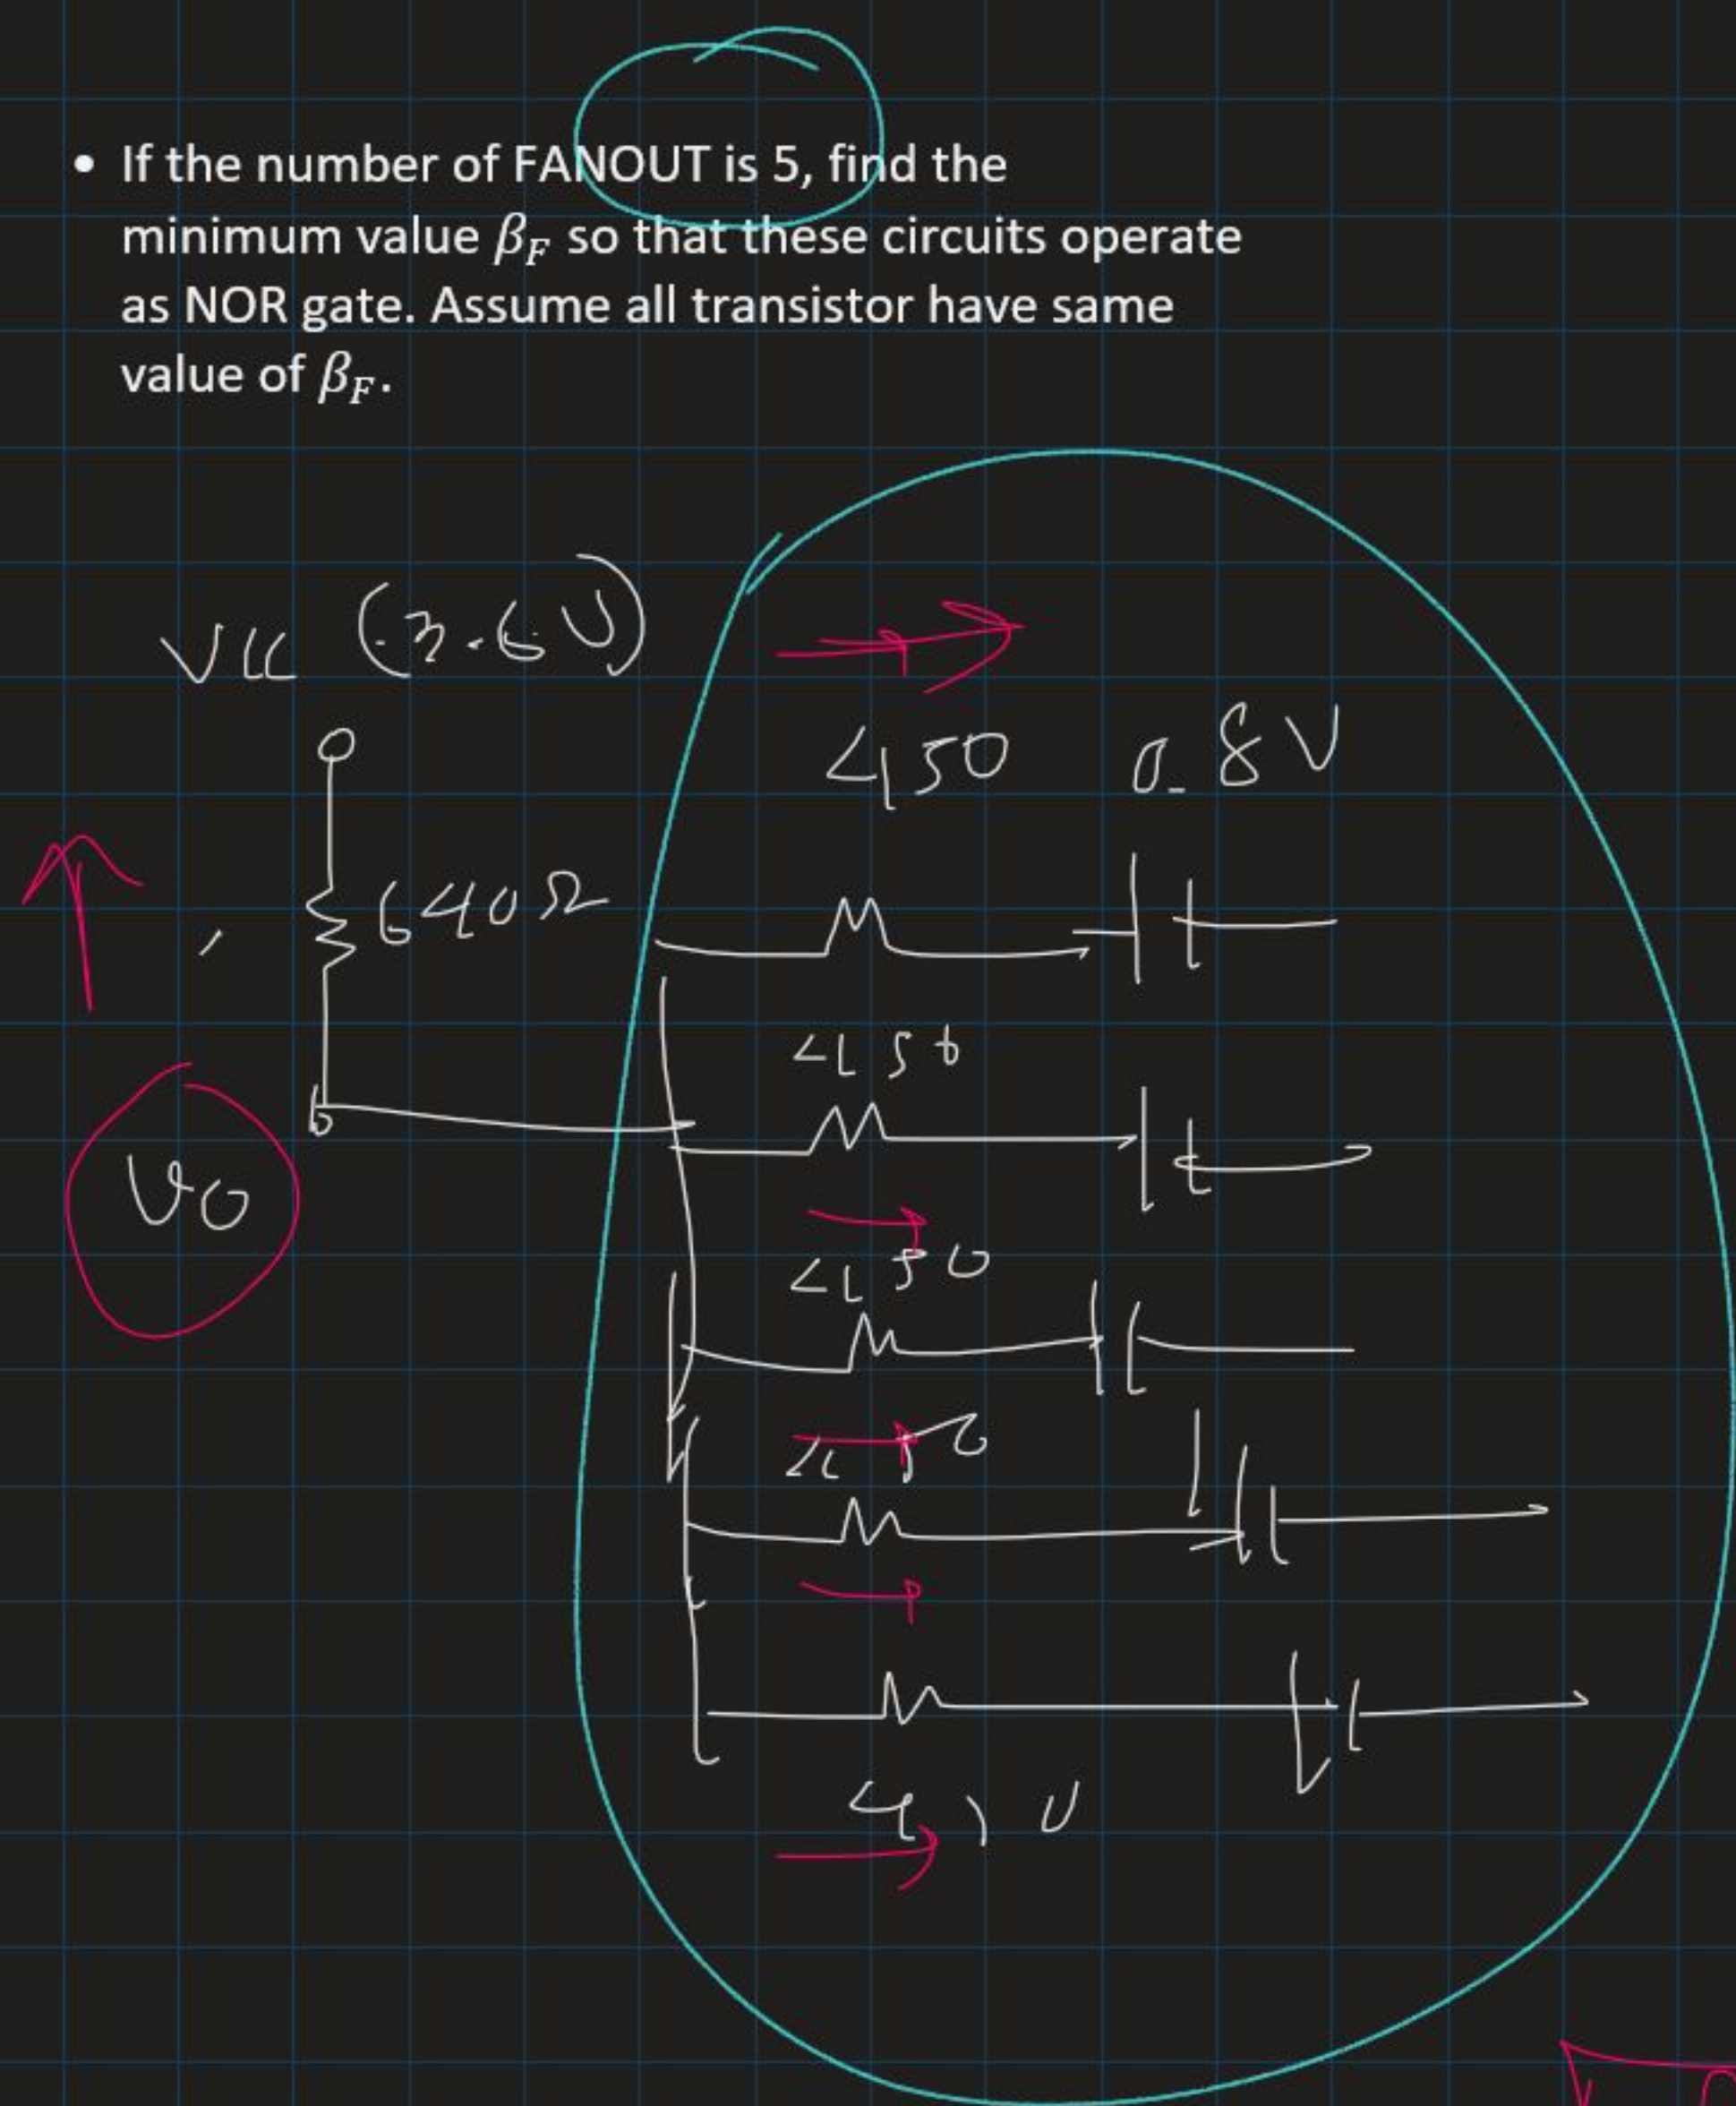 • If the number of FANOUT is 5, find the
minimum value β_F so that these circuits operate
as NOR gate. Assume all transistor have same
value of β_F.
Vcc (3.6V)
450 0.8V
640Ω
450
Vo
450
450